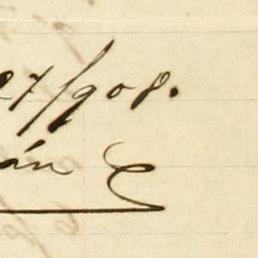 27/908.
án